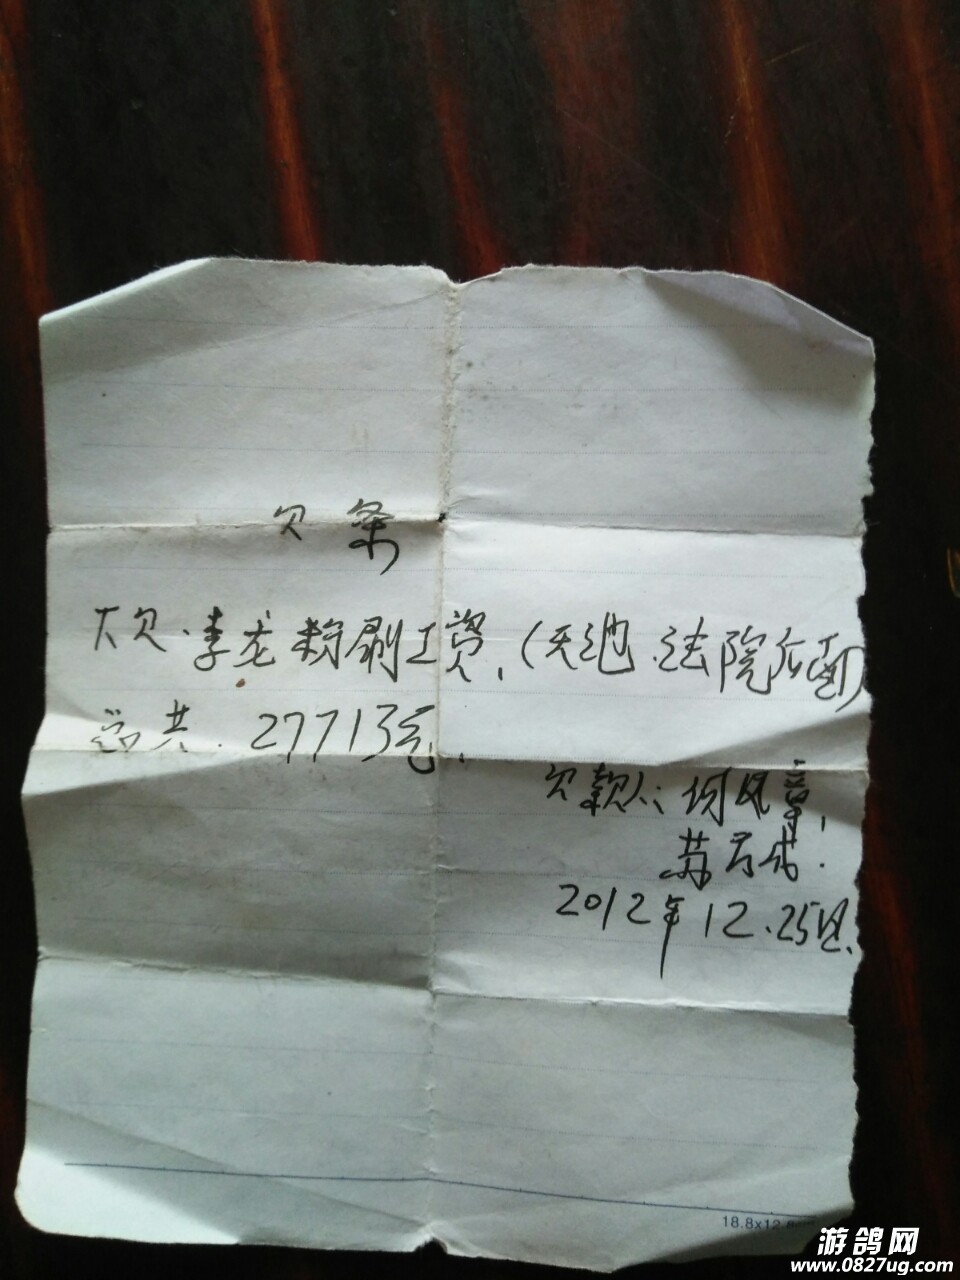 欠条
下欠.李龙粉刷工资,(天池.法院后面)
总共.27713元.
欠款人:何凤
苏万成.
2012年12.25日.
18.8x12.8
游鸽网
www.0827ug.com